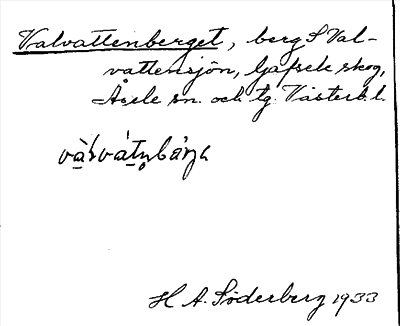 Valvattenberget, berg S Val-
vattensjön, Gafsele skog,
Åsele sn. och tg. Västerb. l.
H A. Söderberg 1933